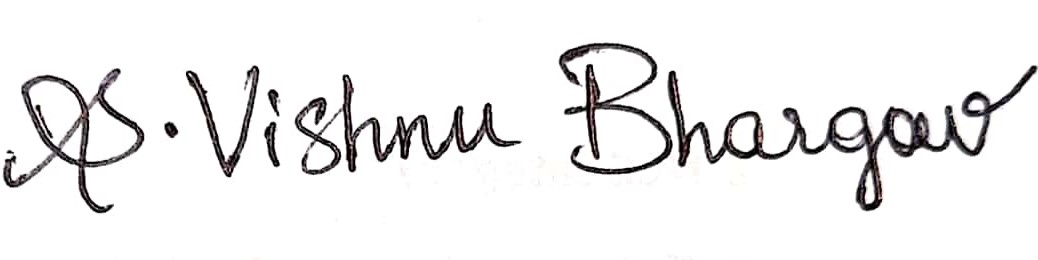 S. Vishnu Bhargav